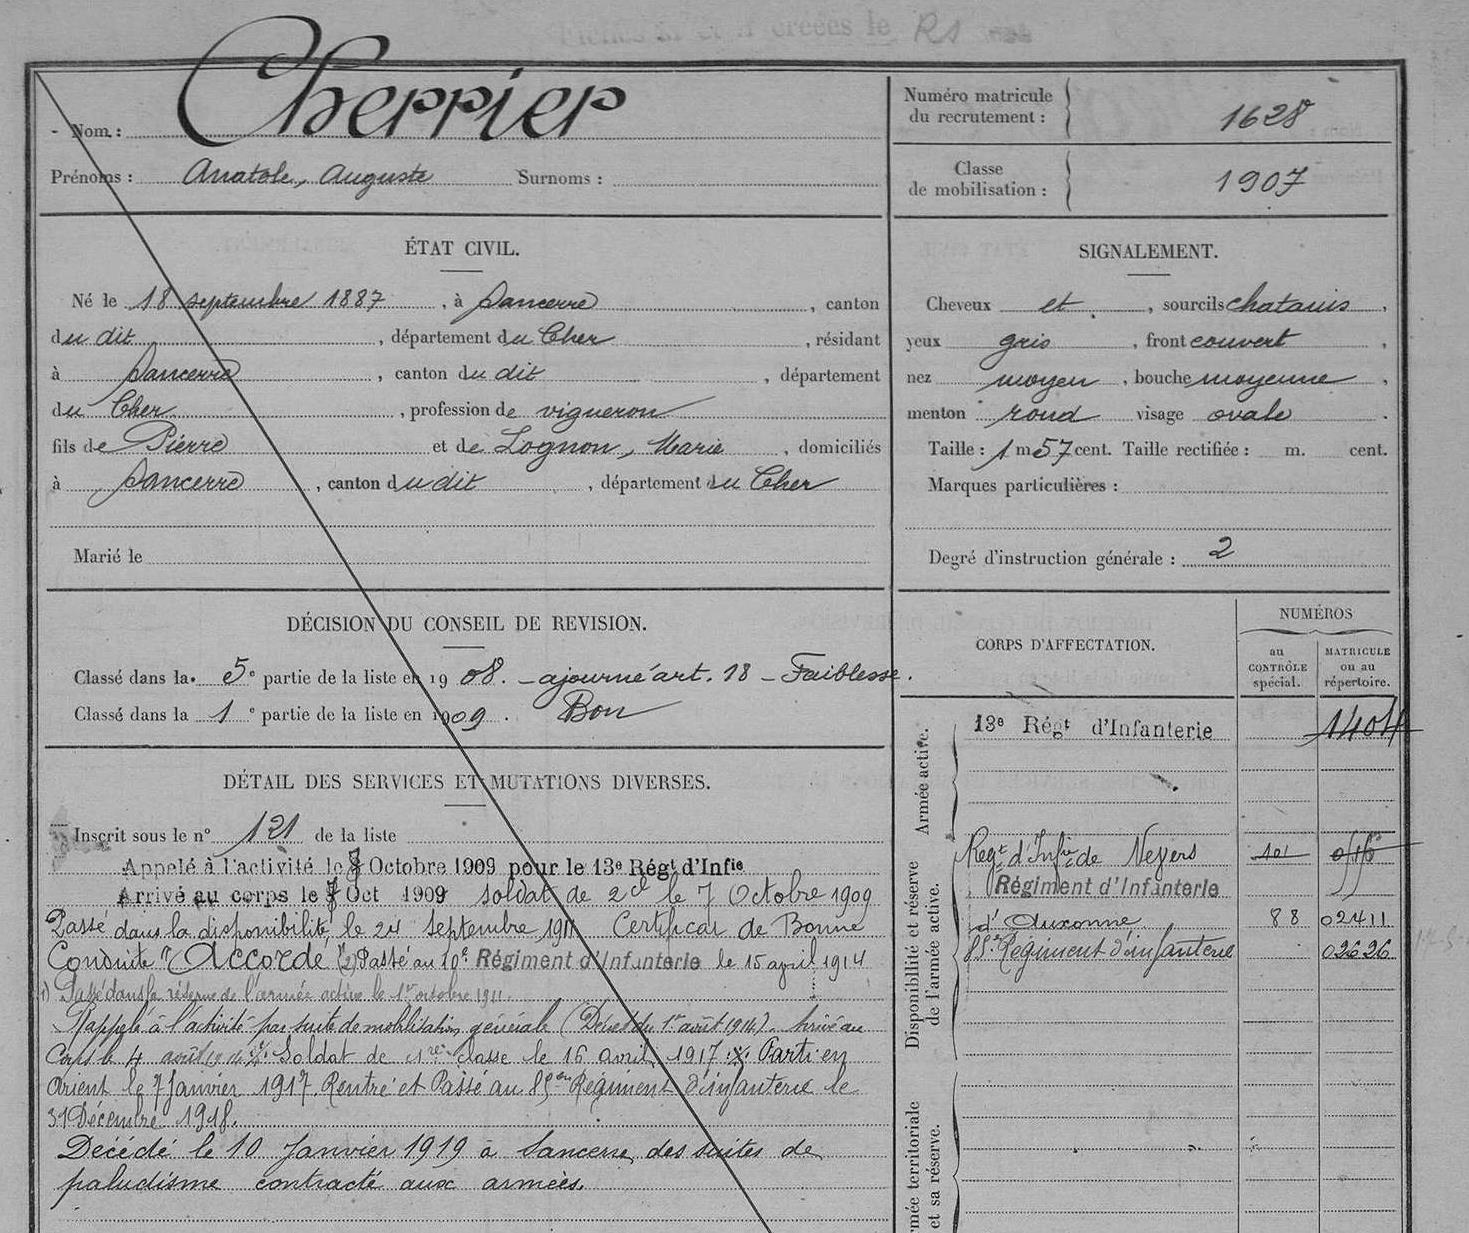 Cherrier
Nom :
Prénoms : Anatole, Auguste Surnoms :
Numéro matricule
du recrutement : 1628
Classe
de mobilisation : 1907
ÉTAT CIVIL.
Né le 18 septembre 1887, à Sancerre, canton
du dit, département du Cher, résidant
à Sancerre, canton du dit, département
du Cher, profession de vigneron
fils de Pierre et de Lognon, Marie, domiciliés
à Sancerre, canton du dit, département du Cher
Marié le
SIGNALEMENT.
Cheveux et, sourcils chatains,
yeux gris, front couvert,
nez moyen, bouche moyenne,
menton rond visage ovale.
Taille : 1 m 57 cent. Taille rectifiée : m. cent.
Marques particulières :
Degré d'instruction générale : 2
DÉCISION DU CONSEIL DE REVISION.
Classé dans la 5e partie de la liste en 1908. - ajourné art. 18 - Faiblesse.
Classé dans la 1e partie de la liste en 1909. Bon
DÉTAIL DES SERVICES ET MUTATIONS DIVERSES.
Inscrit sous le n° 121 de la liste
Appelé à l'activité le Octobre 1909 pour le 13e Régt d'Infie
Arrivé au corps le 7 Oct 1909 soldat de 2cl le 7 Octobre 1909
Passé dans la disponibilité le 24 septembre 1911 Certificat de Bonne
Conduite "Accordé" (1) Passé au 10e Régiment d'Infanterie le 15 avril 1914
1) Passé dans la réserve de l'armée active le 1er octobre 1911.
Rappelé à l'activité par suite de mobilisation générale (Décret du 1er août 1914). Arrivé au
Corps le 4 août 1914. Soldat de 1re classe le 16 avril 1917 Parti en
Orient le 7 Janvier 1917. Rentré et Passé au 85eme Régiment d'infanterie le
31 Décembre 1918.
Décédé le 10 Janvier 1919 à Sancerre, des suites de
paludisme contracté aux armées.
CORPS D'AFFECTATION.
NUMÉROS
au
CONTRÔLE
spécial.
MATRICULE
ou au
répertoire.
Armée active.
13e Régt d'Infanterie 1404
Disponibilité et réserve
de l'armée active.
Regt d'Infie de Nevers 101
Régiment d'Infanterie
d'Auxonne 88 02411
85e Régiment d'infanterie 02626
mée territoriale
et sa réserve.